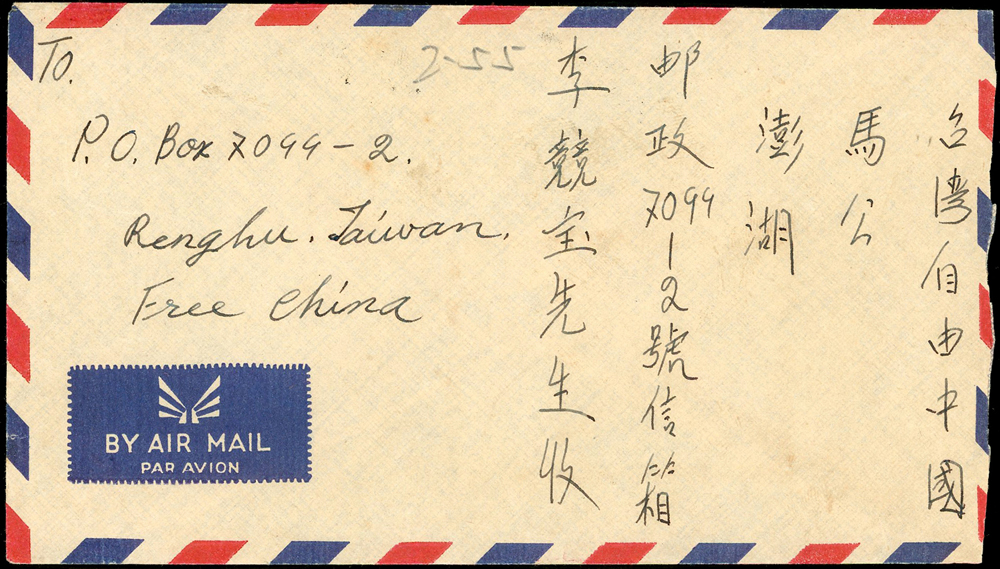 To.
2-55
P.O. Box 7099-2.
Renghu. Taiwan.
Free China
BY AIR MAIL
PAR AVION
台湾自由中國
馬公
澎湖
邮政7099-2號信箱
李競宝先生收